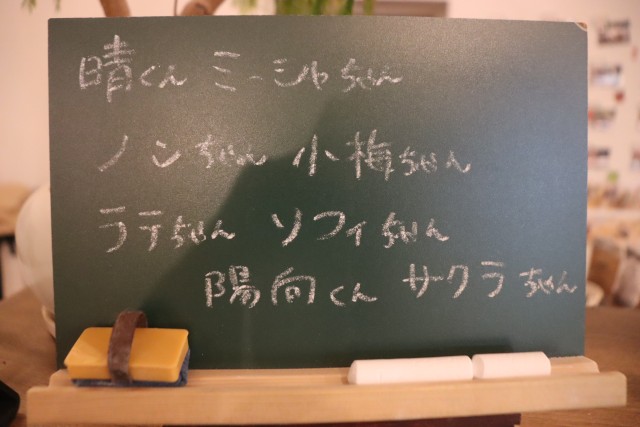 晴くん ミーシャちゃん
ノンちゃん 小梅ちゃん
ラテちゃん ソフィちゃん
陽向くん サクラちゃん